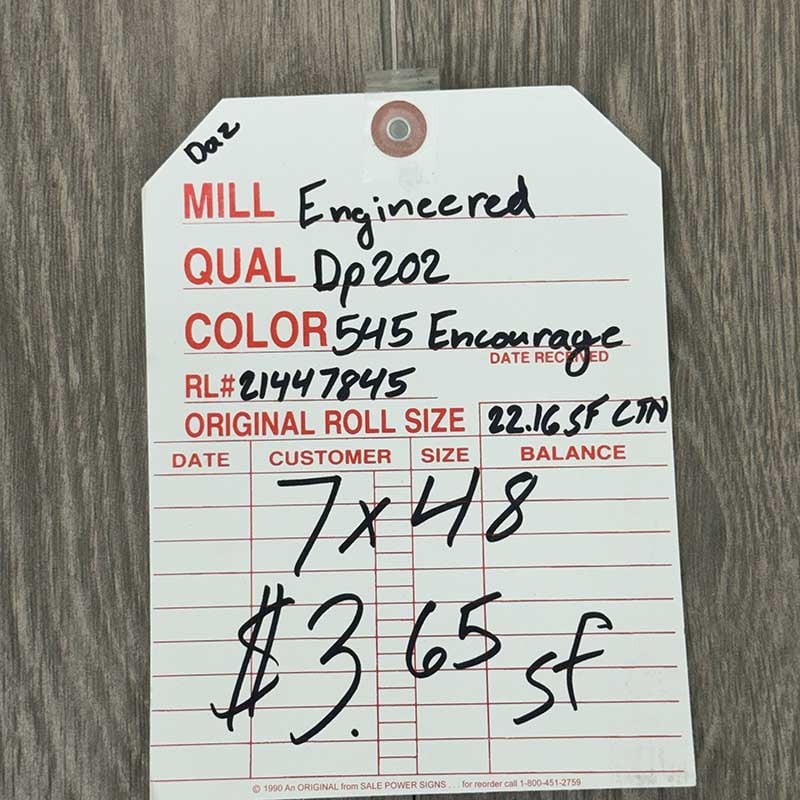 Daz
MILL Engineered
QUAL Dp202
COLOR 545 Encourage
DATE RECEIVED
RL# 21447845
ORIGINAL ROLL SIZE 22.16 SF CTN
DATE CUSTOMER SIZE BALANCE
7x48
$3.65 sf
© 1990 An ORIGINAL from SALE POWER SIGNS . . . for reorder call 1-800-451-2759